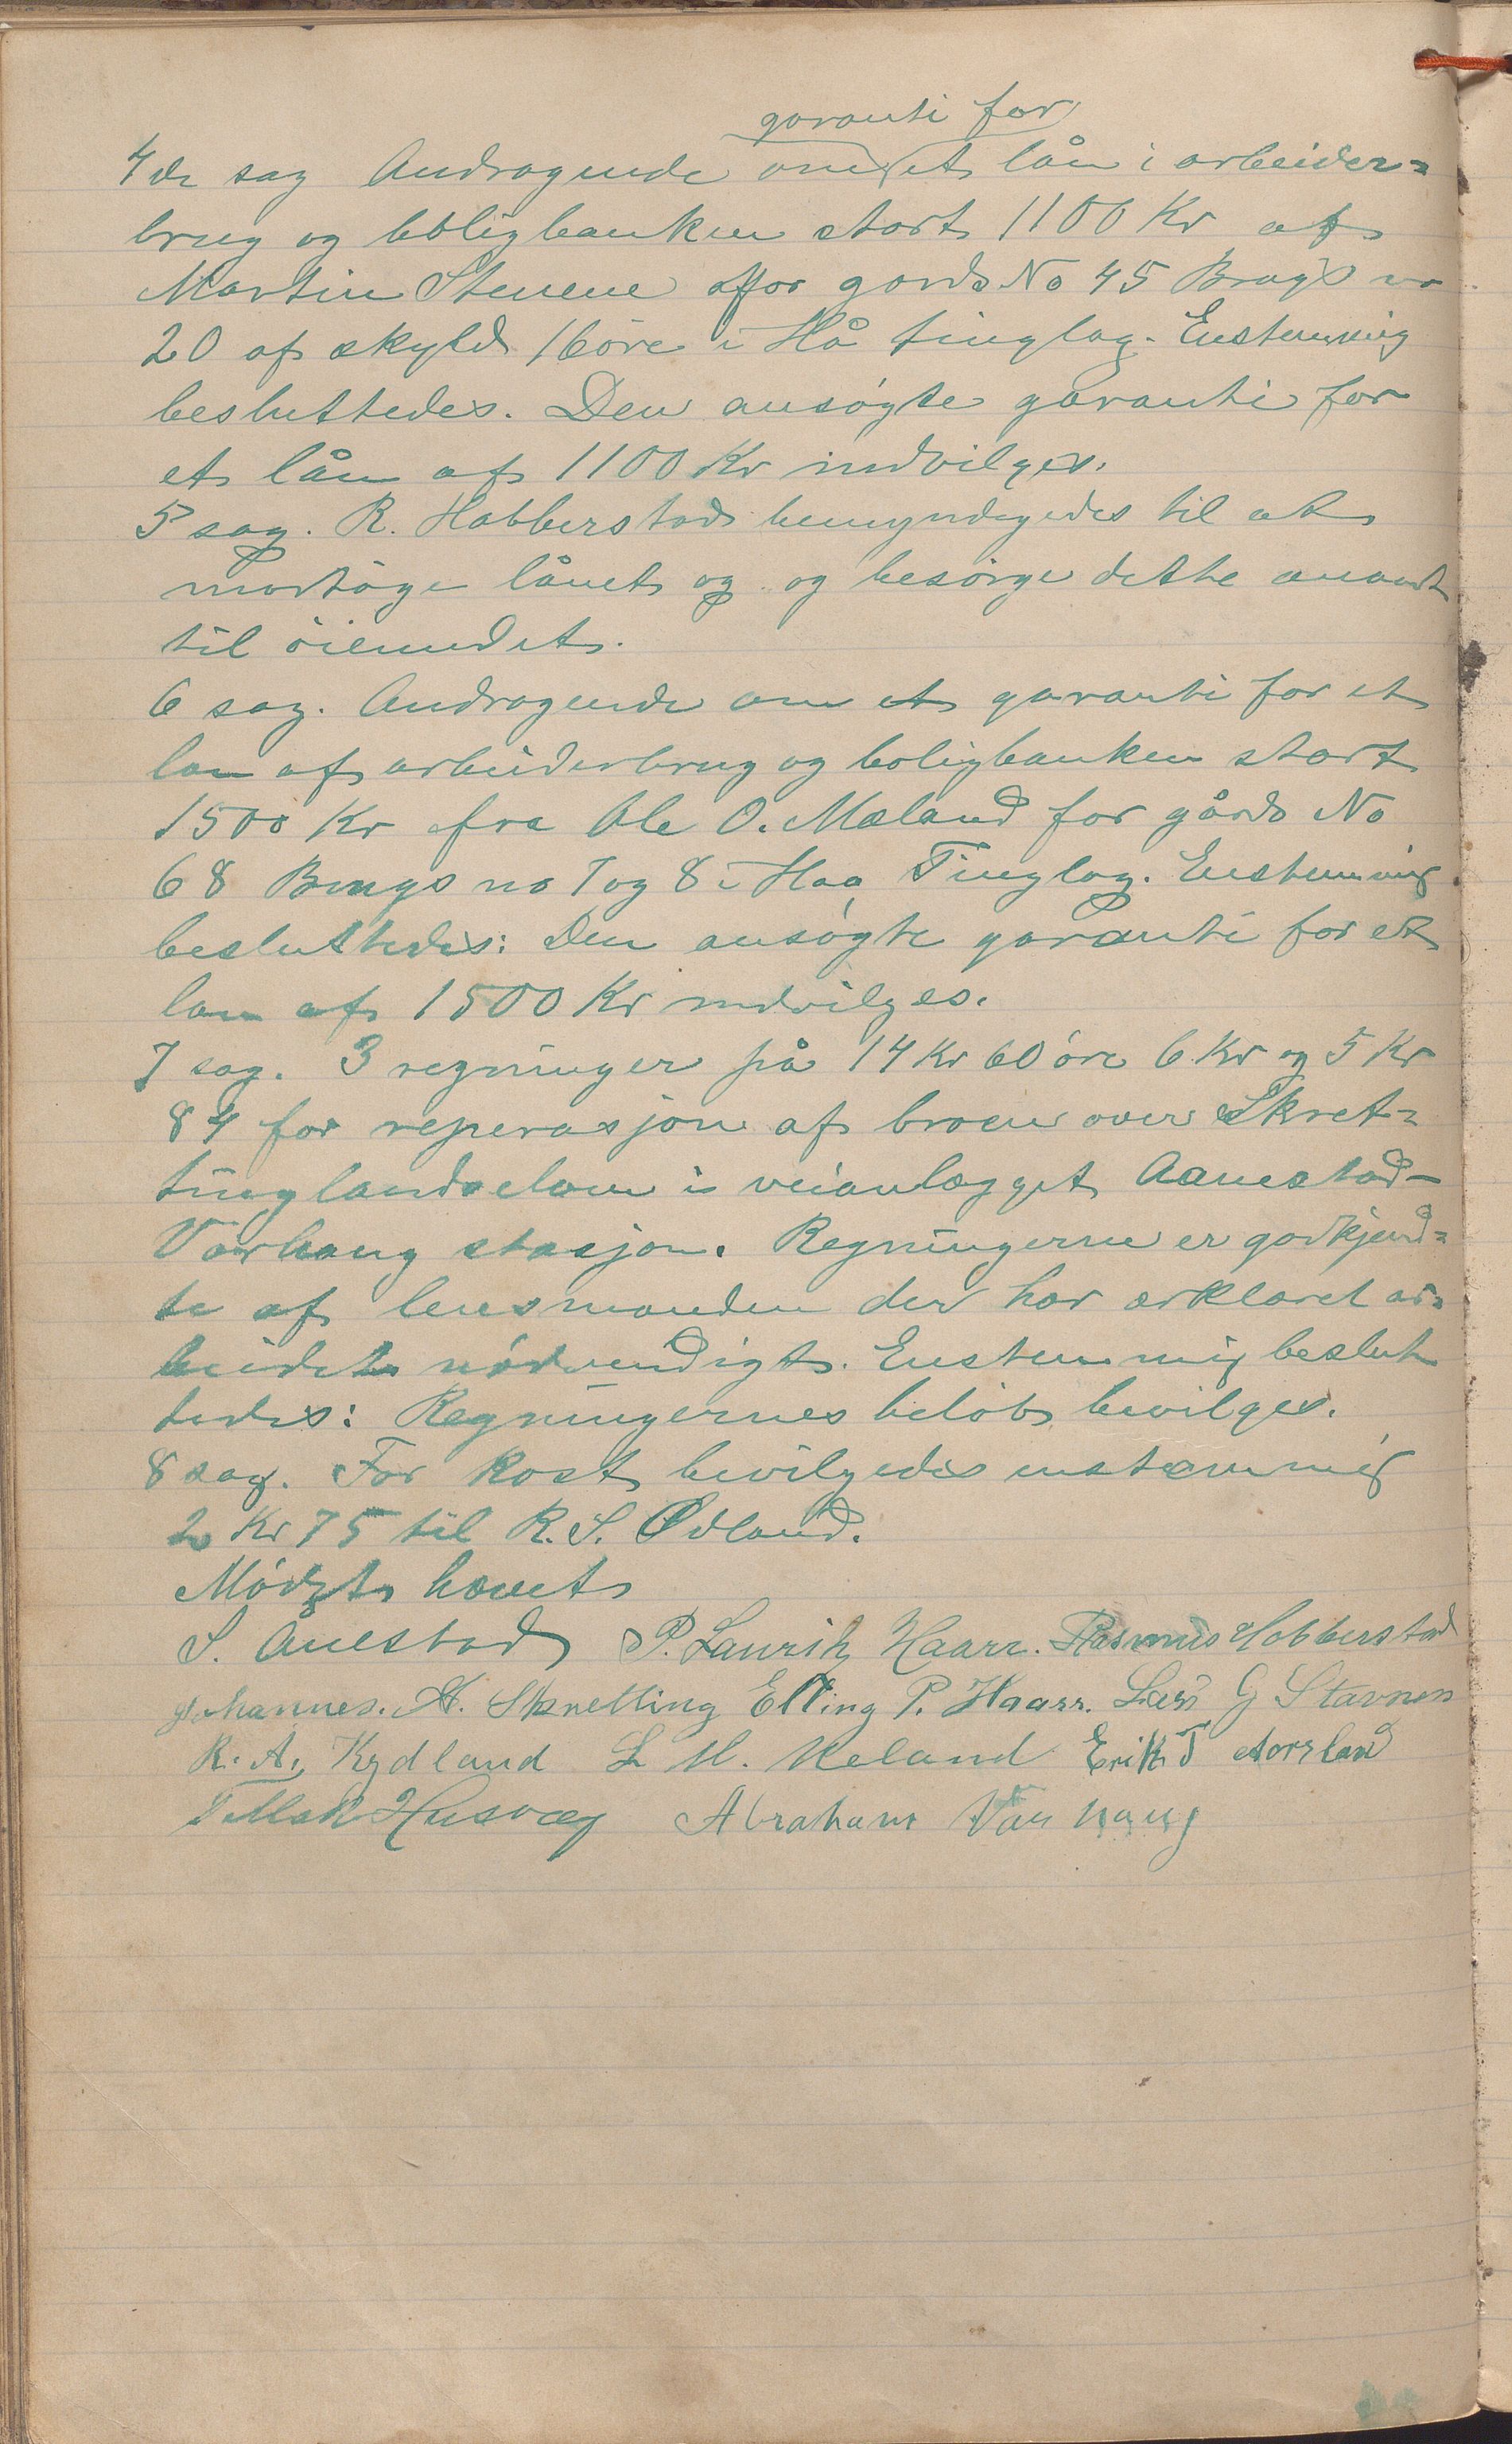 garanti for
4de sag Andragende om et lån i arbeider=
brug og boligbanken stort 1100 Kr af
Martin Stenene for gards No 45 Brugs no
20 af skyld 16 öre i Hå tinglag. Enstemmig
besluttedes. Den ansögte garanti for
et lån af 1100 Kr indvilges.
5 sag. R. Hobberstad bemyndigedes til at
modtage lånet og og besörge dette anvendt
til öiemedet.
6 sag. Andragende om et garanti for et
lan af arbeiderbrug og boligbanken stort
1500 Kr fra Ole O. Mæland for gårds No
68 Brugs no 7 og 8 i Haa Tinglag. Enstemmig
besluttedes: Den ansögte garanti for et
lan af 1500 Kr indvilges.
7 sag. 3 regninger på 14 Kr 60 öre 6 Kr og 5 Kr
84 for reperasjon af broen over Skret=
tinglandselven i veianlægget Aanestad-
Varhaug stasjon. Regningerne er godkjend=
te af lensmanden der har erklæret ar=
beidet nödvendigt. Enstemmig beslut
tedes: Regningernes belöb bevilges.
8 sag. For Kost bevilgedes enstemmig
2 Kr 75 til R. S. Ödland.
Mödet hævet
S. Ånestad P. Lauritz Haarr. Rasmus Hobberstad
Johannes. A. Skretting Elling P. Haarr. Lars G Stavnem
R. A. Kydland L M. Reland Erik T Aarsland
T Husvæg Abraham Varhaug